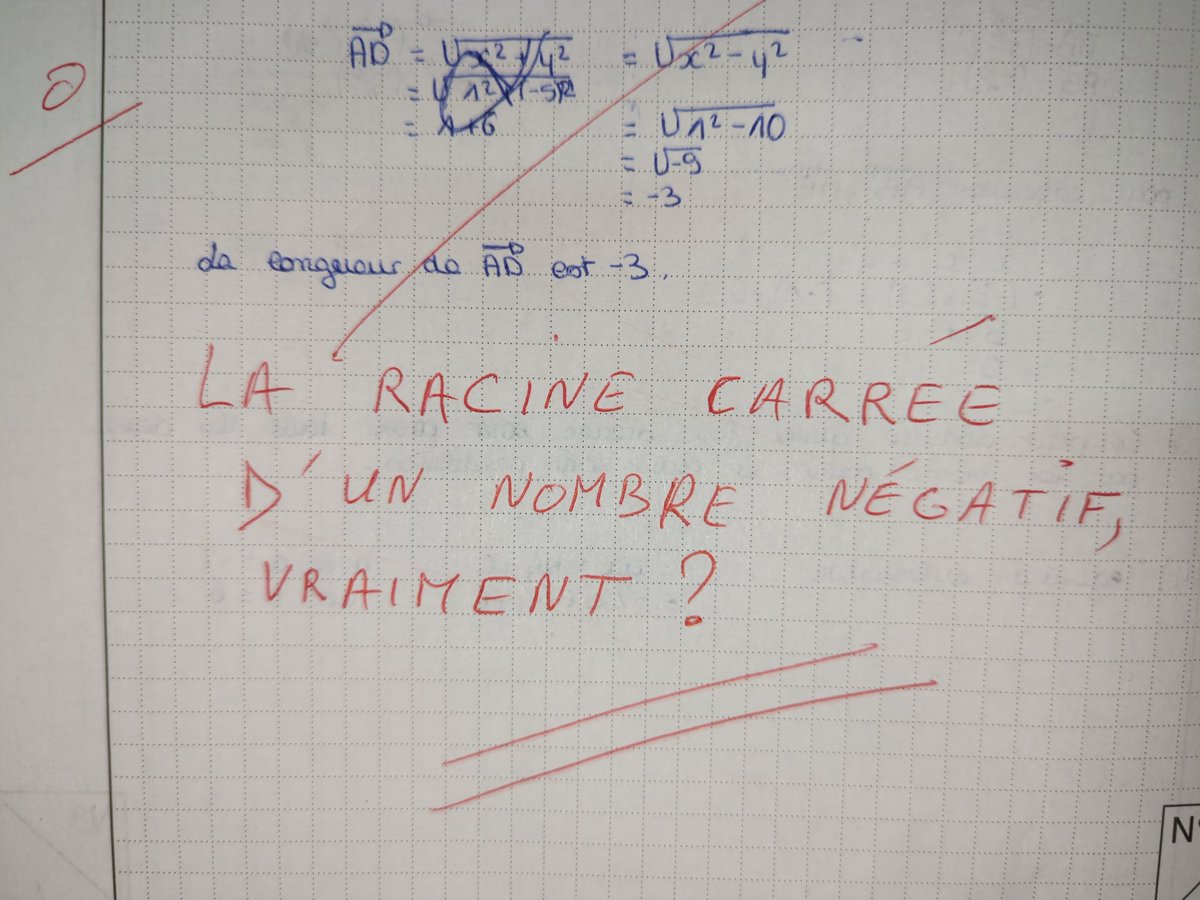 0
AD = √x² + y² = √x² - y²
= √1² × (-5)² = √1² - 10
= 1+6 = √-9
= -3
La longueur de AD est -3.
LA RACINE CARRÉE
D'UN NOMBRE NÉGATIF,
VRAIMENT ?
N°